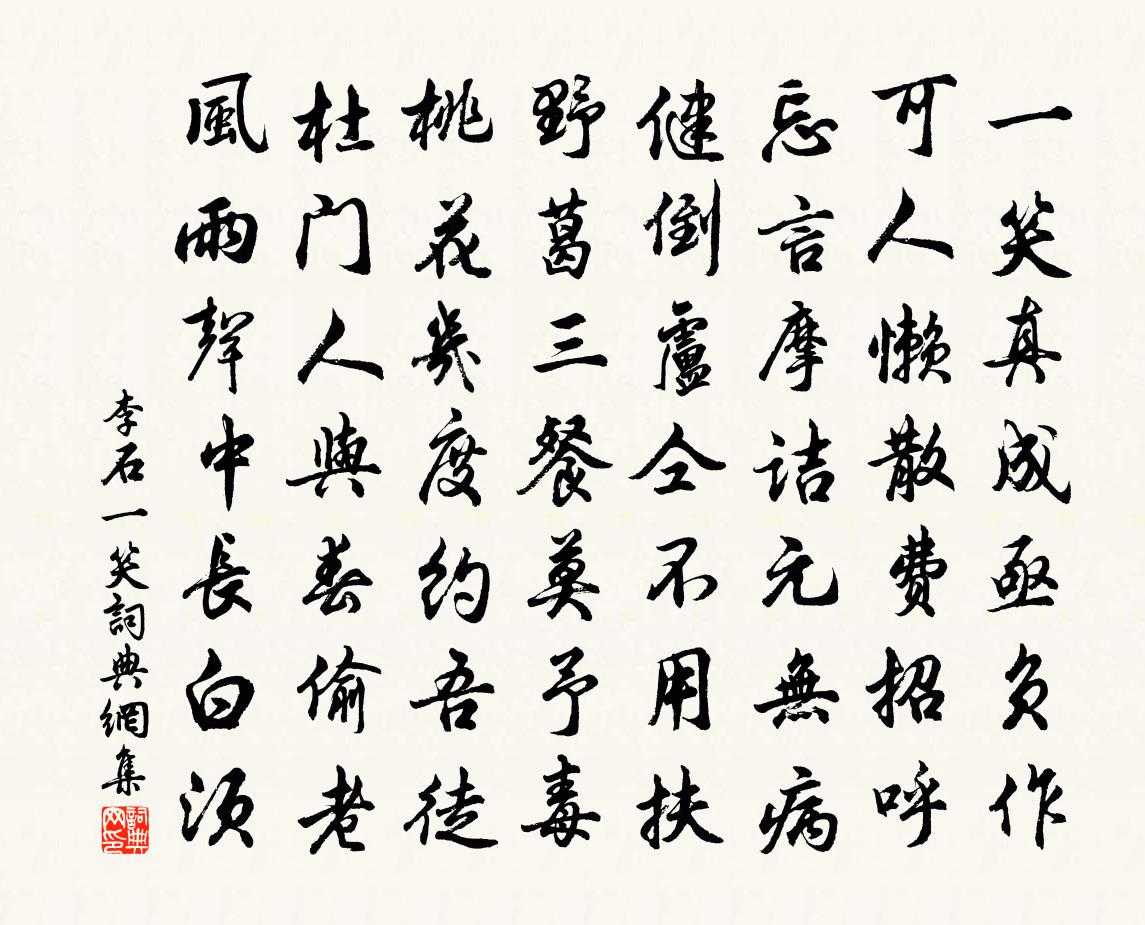 一笑真成亟負作
可人懶散費招呼
忘言摩詰元無病
健倒盧仝不用扶
野葛三餐莫予毒
桃花幾度約吾徒
杜門人與春偷老
風雨聲中長白須
李石一笑詞典網集
詞典網印